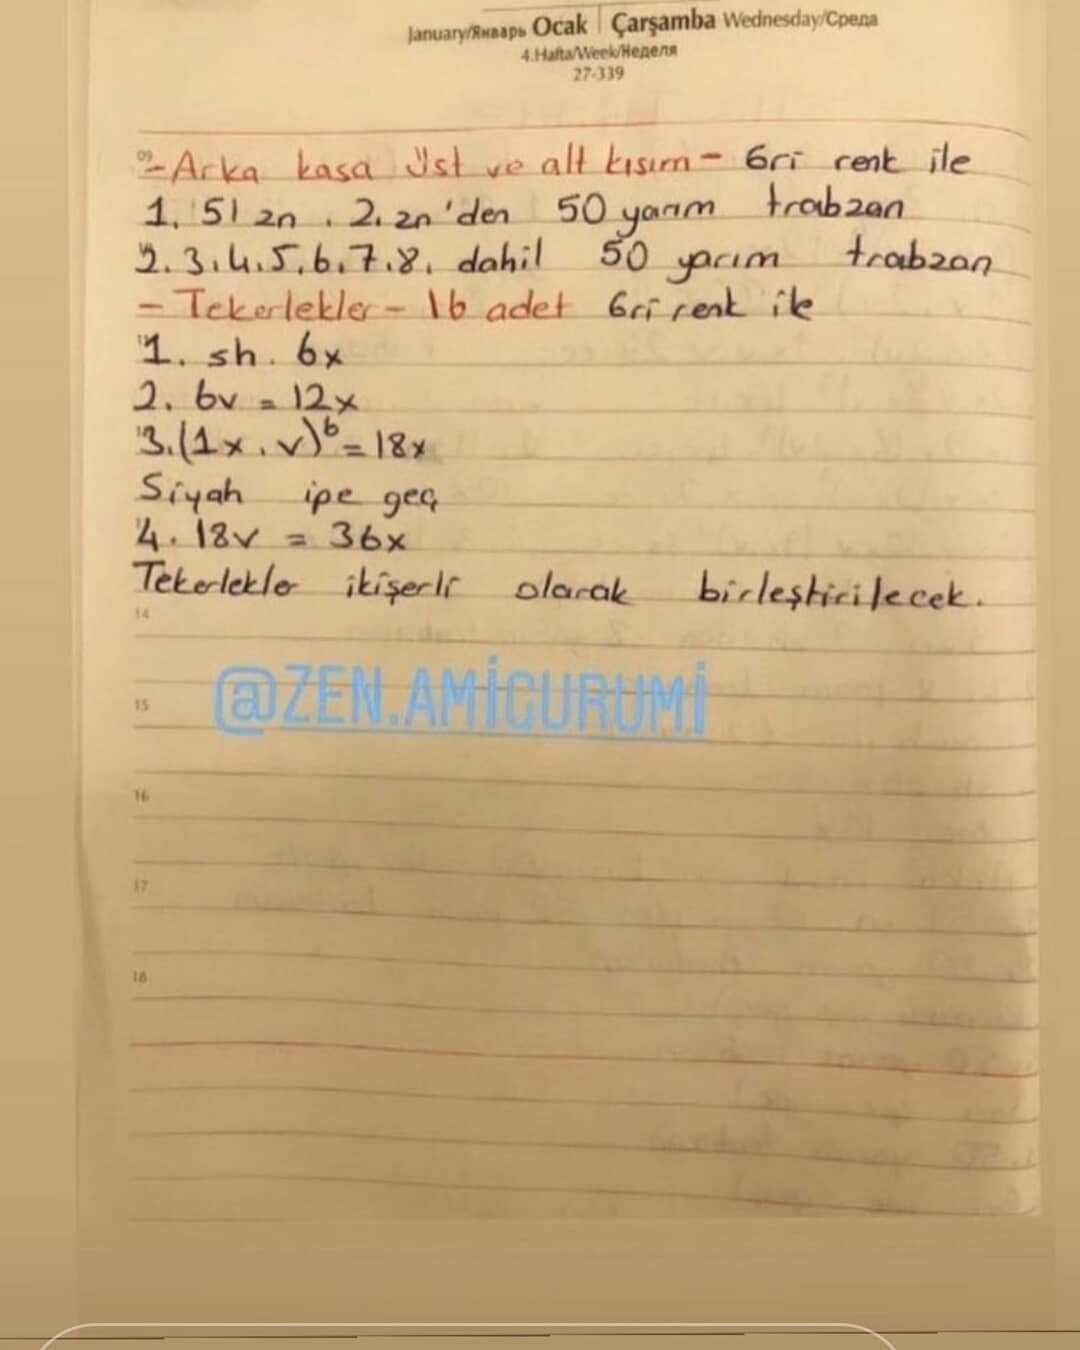 January/Январь Ocak | Çarşamba Wednesday/Среда
4.Hafta/Week/Неделя
27-339
09
- Arka kasa üst ve alt kısım - Gri renk ile
1. 51 zn . 2. zn'den 50 yarım trabzan
2.3.4.5.6.7.8. dahil 50 yarım trabzan
- Tekerlekler - 16 adet Gri renk ile
1. sh. 6x
2. 6v = 12x
3.(1x.v)⁶ = 18x
Siyah ipe geç
4. 18v = 36x
Tekerlekler ikişerli olarak birleştirilecek.
14
15
@ZEN.AMİGURUMİ
16
17
18